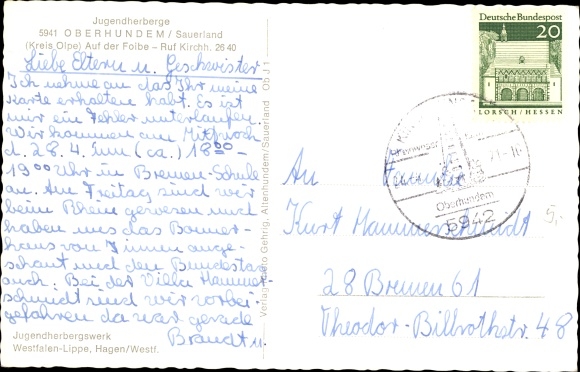 Jugendherberge
5941 OBERHUNDEM / Sauerland
(Kreis Olpe) Auf der Folbe – Ruf Kirchh. 26 40
Liebe Eltern u. Geschwister
Ich nehme an das Ihr meine
Karte erhalten habt. Es ist
mir ein Fehler unterlaufen.
Wir kommen am Mittwoch
d. 28. 4. um (ca.) 18 00 –
19 00 Uhr in Bremen-Schule
an. Am Freitag sind wir
beim Rhein gewesen und
haben uns das Bonner-
haus von innen ange-
schaut und den Bundestag
auch. Bei der Villa Hammer-
schmidt sind wir vorbei-
gefahren da war gerade
Brandt u.
Jugendherbergswerk
Westfalen-Lippe, Hagen/Westf.
Verlag Foto Gehrig, Altenhundem/Sauerland Obd J 1
Deutsche Bundespost
20
LORSCH/HESSEN
Oberhundem
5942
An Familie
Kurt Hammerschmidt
5,-
28 Bremen 61
Theodor-Billrothstr. 48